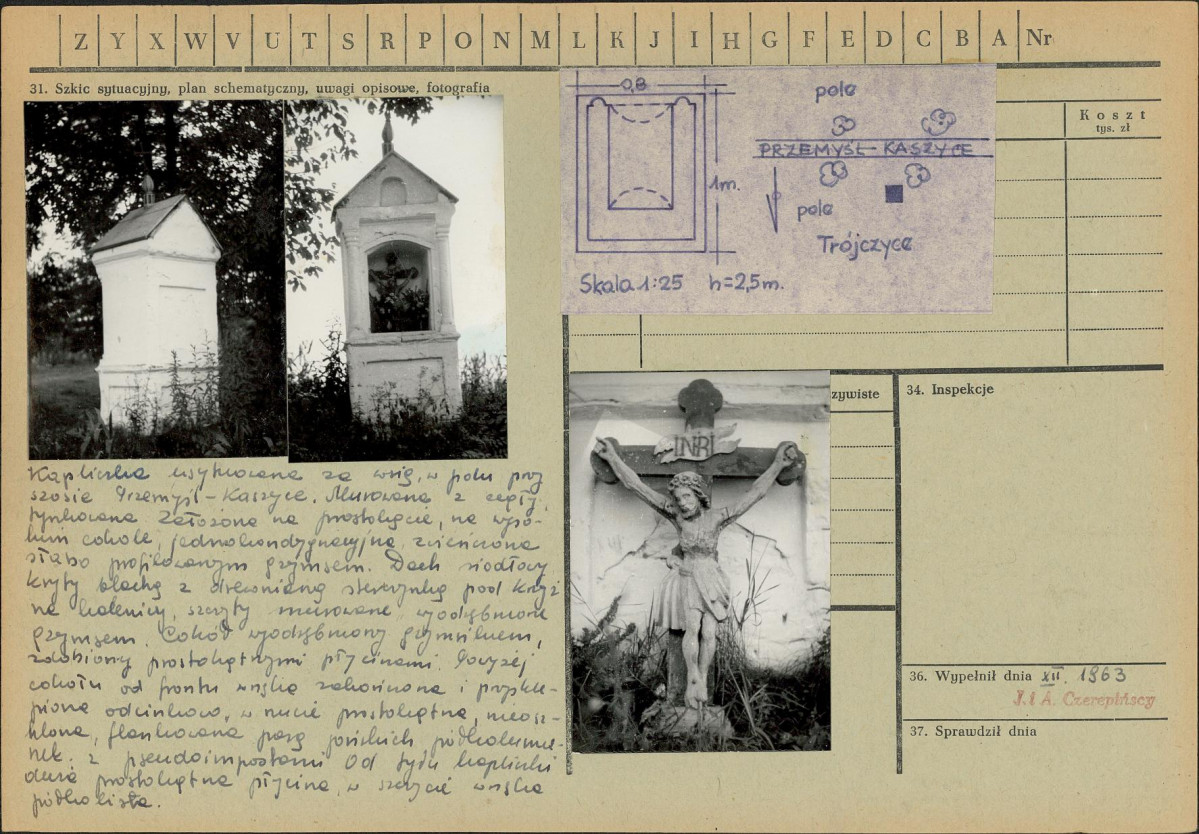 Z Y X W V U T S R P O N M L K J I H G F E D C B A Nr
31. Szkic sytuacyjny, plan schematyczny, uwagi opisowe, fotografia
0,8
1m.
Skala 1:25 h=2,5m.
pole
PRZEMYŚL-KASZYCE
pole
Trójczyce
Koszt
tys. zł
INRI
Kapliczka usytuowana za wsią, w polu przy
szosie Przemyśl-Kaszyce. Murowana z cegły,
tynkowana. Założona na prostokącie, na wyso-
kim cokole, jednokondygnacyjna, zwieńczona
słabo profilowanym gzymsem. Dach siodłowy
kryty blachą z drewnianą sterczynką pod krzyż
na kalenicy, szczyty murowane wyodrębnione
gzymsem. Cokół wyodrębniony gzymsikiem,
zdobiony prostokątnymi płycinami. Powyżej
cokołu od frontu wnęka zakończona i przyskle-
piona odcinkowo, w rzucie prostokątna, nieosz-
klona, flankowana parą jońskich półkolumie-
nek z pseudoimpostami. Od tyłu kapliczki
duża prostokątna płycina, w szczycie wnęka
półkolista.
zywiste
34. Inspekcje
36. Wypełnił dnia XII. 1963
J. i A. Czerepińscy
37. Sprawdził dnia